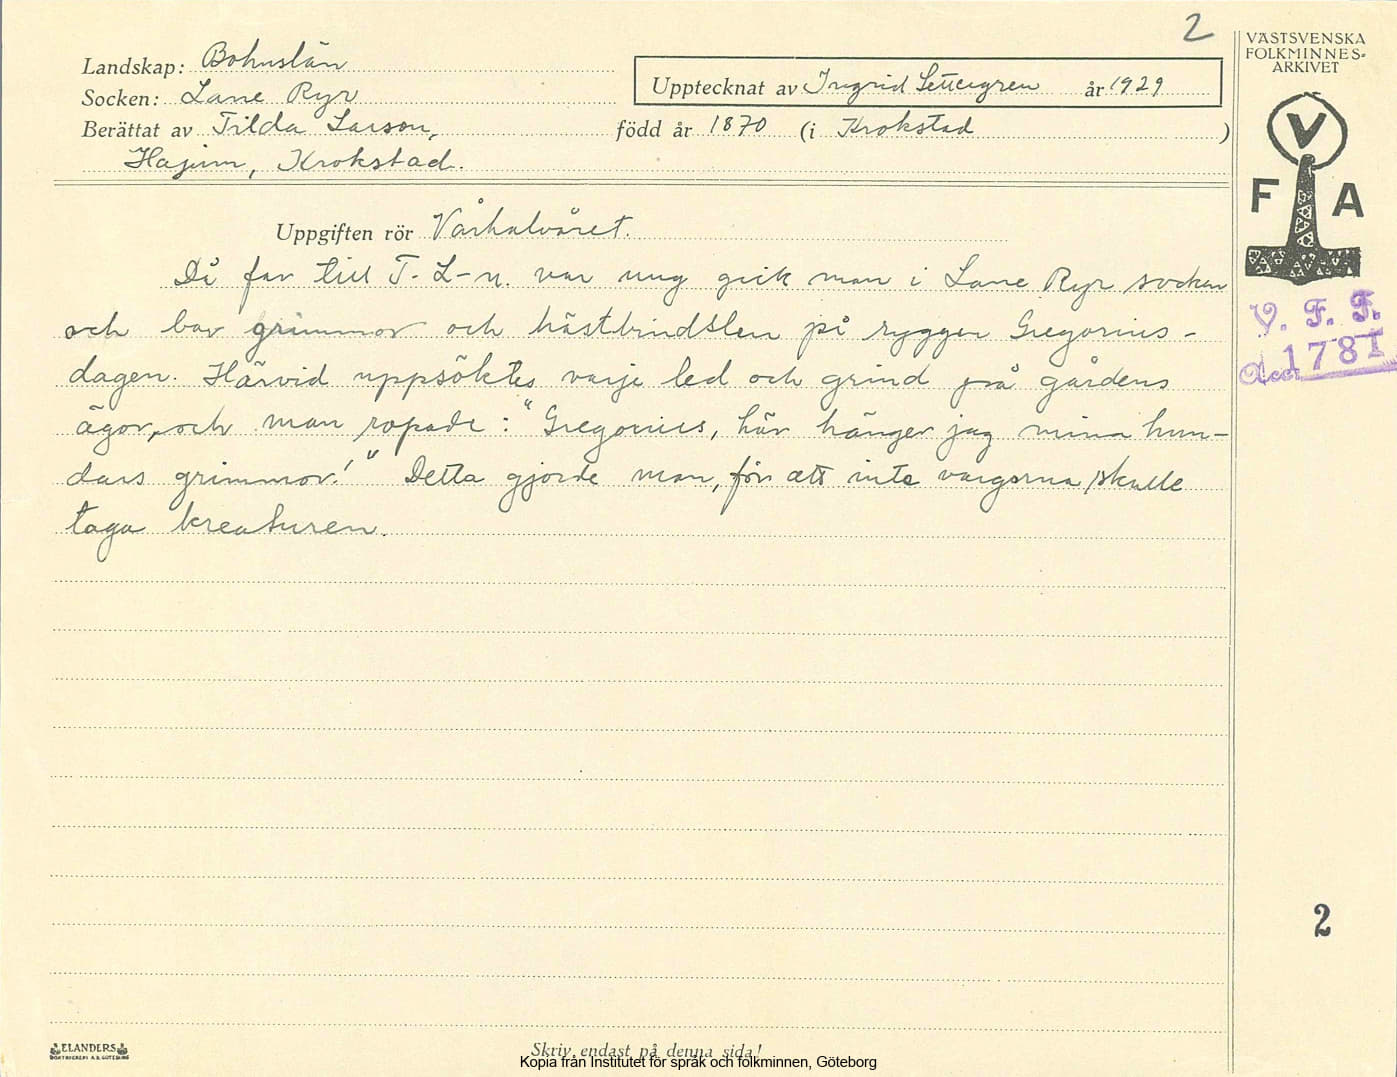 2
Landskap: Bohuslän
Socken: Lane Ryr
Upptecknat av Ingrid Settergren år 1929
Berättat av Tilda Larson, född år 1870 (i Krokstad )
Hajum, Krokstad.
VÄSTSVENSKA
FOLKMINNES-
ARKIVET
V
F A
V. F. F.
Acc. 1781
Uppgiften rör Vårhalvåret.
Då far till T. L-n. var ung gick man i Lane Ryr socken
och bar grimmor och hästbindslen på ryggen Gregorius-
dagen. Härvid uppsöktes varje led och grind på gårdens
ägor, och man ropade: "Gregorius, här hänger jag mina hun-
dars grimmor!" Detta gjorde man, för att inte vargarna skulle
taga kreaturen.
2
ELANDERS
BOKTRYCKERI A.B. GÖTEBORG
Skriv endast på denna sida!
Kopia från Institutet för språk och folkminnen, Göteborg